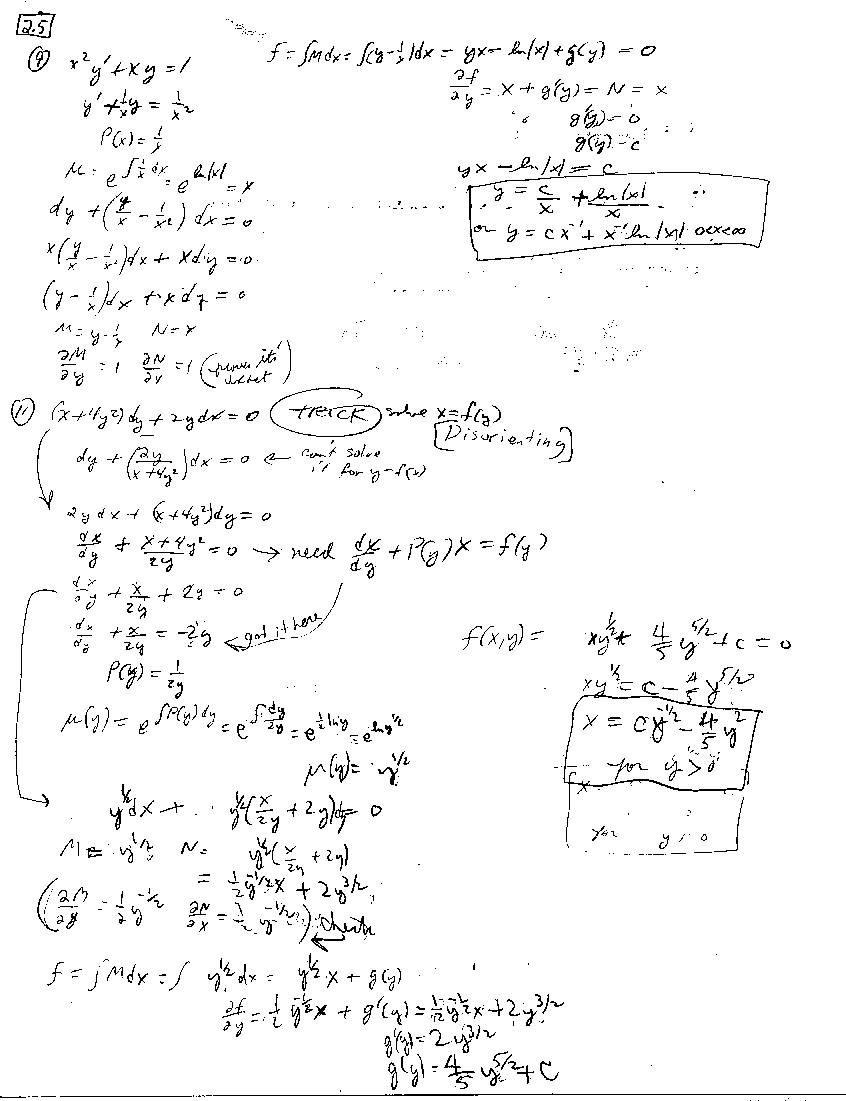 2.5
⑨ x²y' + xy = 1
y' + 1/x y = 1/x²
P(x) = 1/x
μ = e^∫1/x dx = e^ln|x| = x
dy + (y/x - 1/x²) dx = 0
x(y/x - 1/x²)dx + xdy = 0
(y - 1/x)dx + xdy = 0
M = y - 1/x N = x
∂M/∂y = 1 ∂N/∂x = 1 (proves its exact)
f = ∫Mdx = ∫(y - 1/x)dx = yx - ln|x| + g(y) = 0
∂f/∂y = x + g'(y) = N = x
g'(y) = 0
g(y) = c
yx - ln|x| = c
y = c/x + ln|x|/x
or y = cx⁻¹ + x⁻¹ ln|x| 0<x<∞
⑪ (x+4y²)dy + 2ydx = 0 TRICK solve x = f(y)
[Disorienting]
dy + (2y/(x+4y²))dx = 0 ← can't solve it for y = f(x)
2ydx + (x+4y²)dy = 0
dx/dy + (x+4y²)/2y = 0 → need dx/dy + P(y)x = f(y)
dx/dy + x/2y + 2y = 0
dx/dy + x/2y = -2y ← got it here
P(y) = 1/2y
μ(y) = e^∫P(y)dy = e^∫dy/2y = e^½ln y = e^ln y^1/2
μ(y) = y^1/2
y^½dx + y^½(x/2y + 2y)dy = 0
M = y^1/2 N = y^½(x/2y + 2y)
= ½y^-1/2 x + 2y^3/2
(∂M/∂y = ½y^-1/2 ∂N/∂x = ½y^-1/2) checks
f = ∫Mdx = ∫ y^½ dx = y^½ x + g(y)
∂f/∂y = ½y^-½ x + g'(y) = ½y^-½ x + 2y^3/2
g'(y) = 2y^3/2
g(y) = 4/5 y^5/2 + C
f(x,y) = xy^½ + 4/5 y^5/2 + c = 0
xy^½ = c - 4/5 y^5/2
x = cy^-1/2 - 4/5 y²
for y >
for y > 0